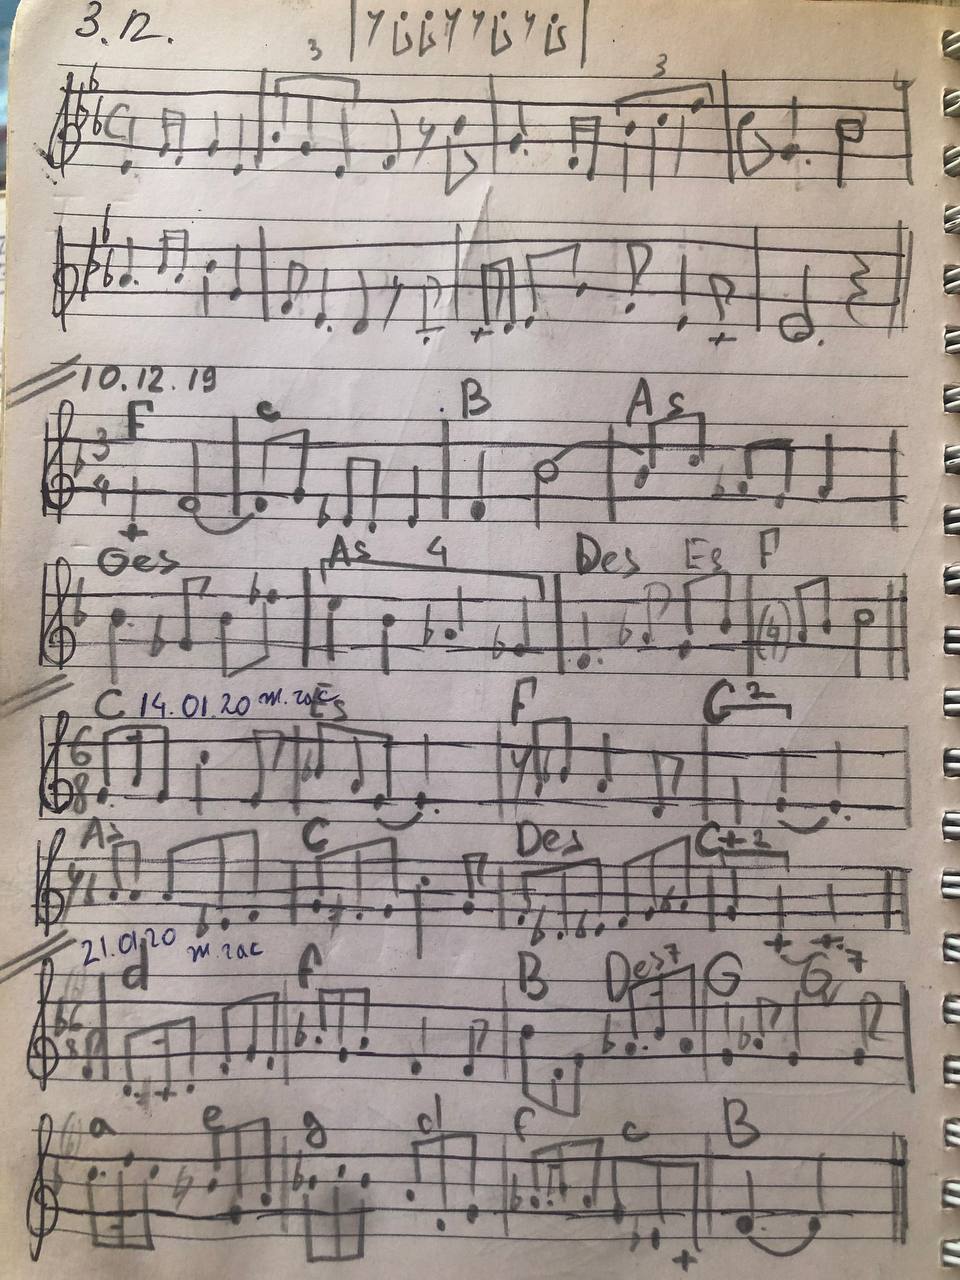 3.12.
3
3
C
10.12.19
F c B As
3
4
Ges As 4 Des Es F
(4)
C 14.01.20 Es F G 2
6
8
As C Des C+2
21.01.20
d f B Des7 G G7
6
8
a e g d f c B